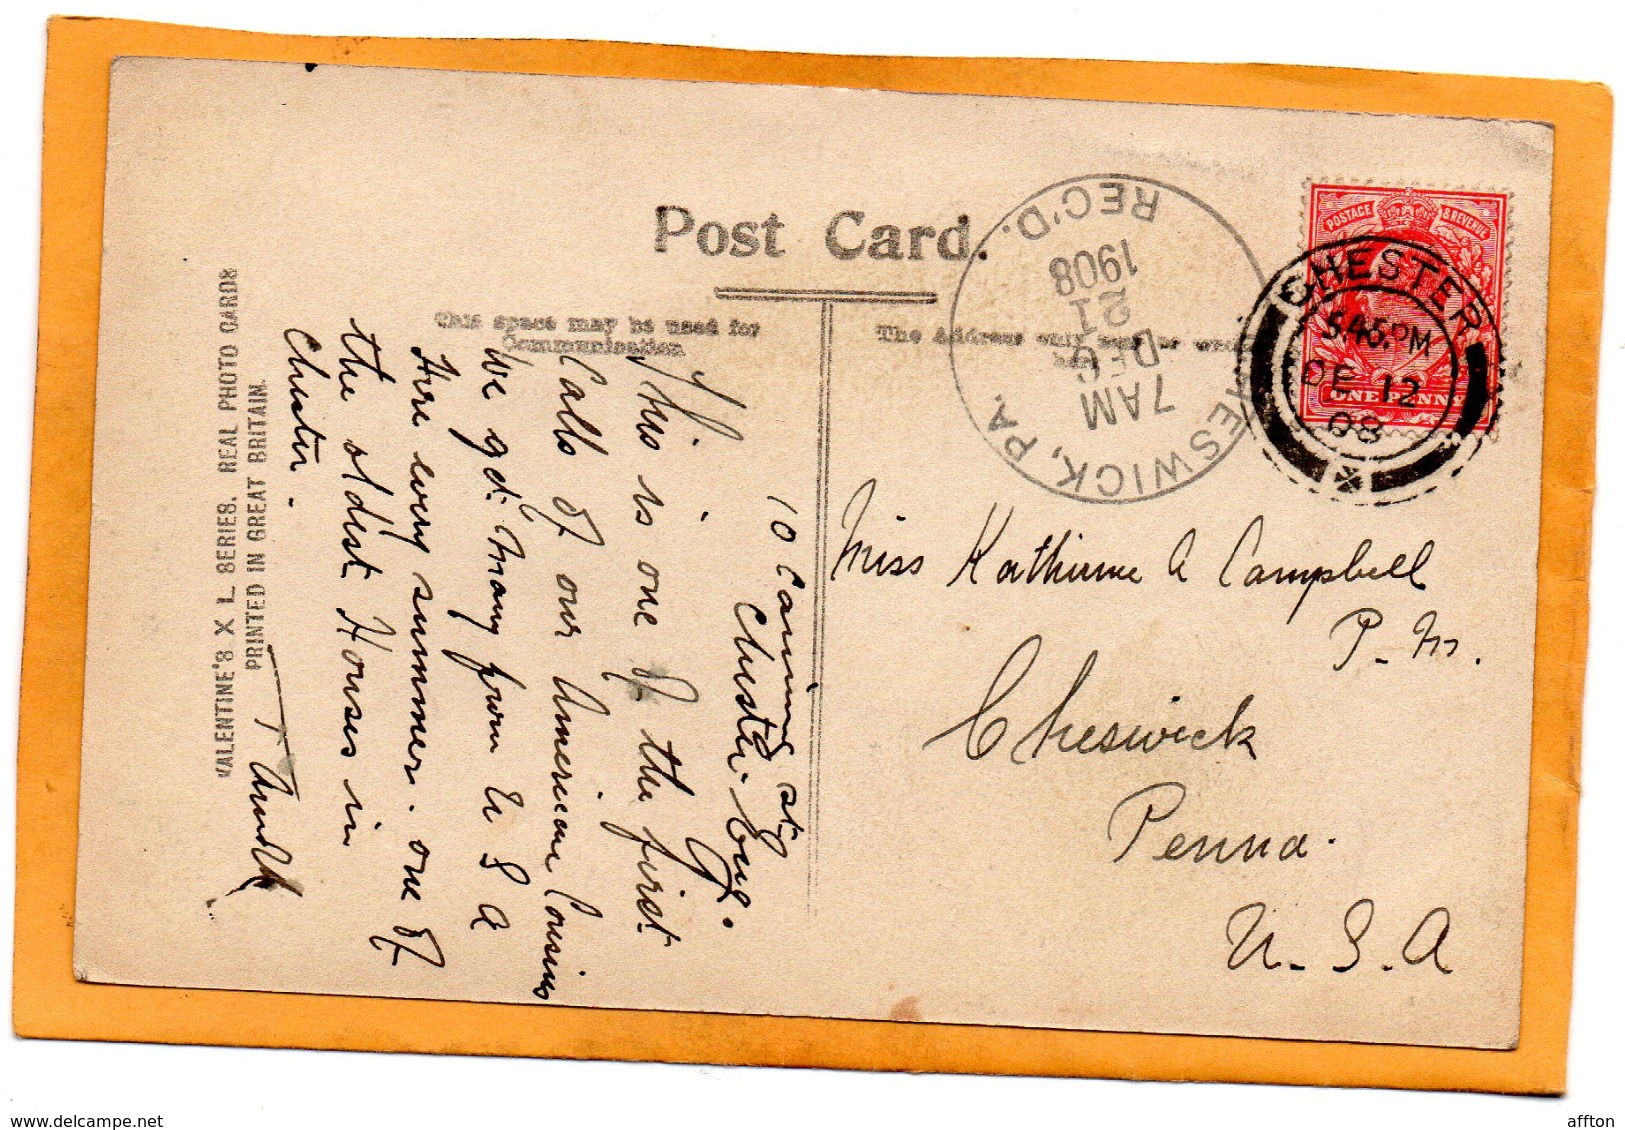 Post Card.
This space may be used for
Communication
The Address only
VALENTINE'S X L SERIES. REAL PHOTO CARDS
PRINTED IN GREAT BRITAIN.
CHESWICK, PA.
7AM
DEC
21
1908
REC'D.
POSTAGE & REVENUE
ONE PENNY
CHESTER
5.45 PM
DE 12
08
10 Canning St
Chester. Eng.
This is one of the first
Calls of our American Cousins
We get many from U S A
Here every summer. one of
the oldest Houses in
Chester.
Miss Katherine A Campbell
P. M.
Cheswick
Penna.
U. S. A
www.delcampe.net
affton